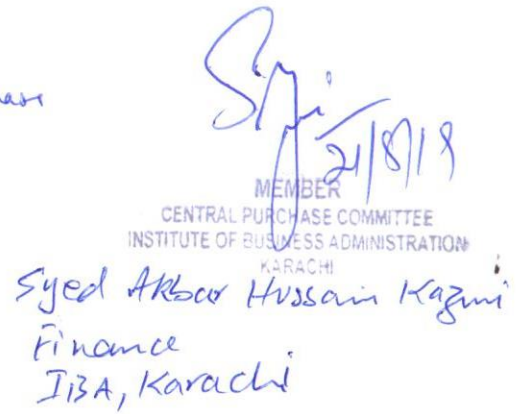 21/8/19
MEMBER
CENTRAL PURCHASE COMMITTEE
INSTITUTE OF BUSINESS ADMINISTRATION
KARACHI
Syed Akbar Hussain Kazmi
Finance
IBA, Karachi